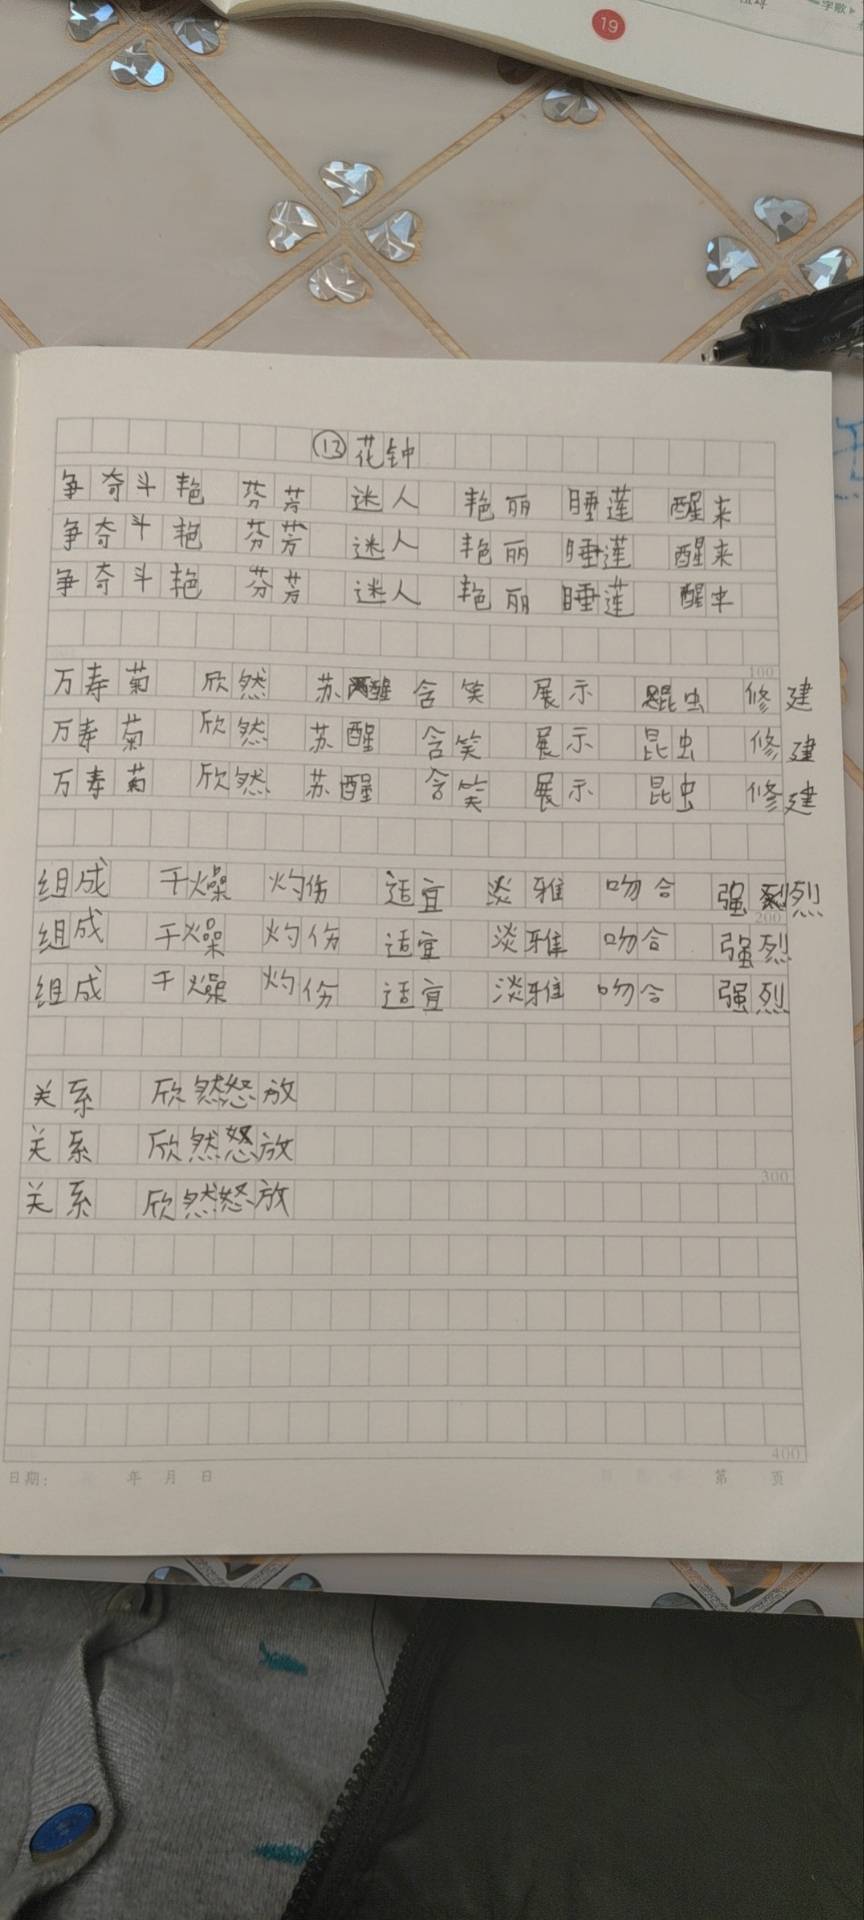 19
字散
⑬花钟
争奇斗艳 芬芳 迷人 艳丽 睡莲 醒来
争奇斗艳 芬芳 迷人 艳丽 睡莲 醒来
争奇斗艳 芬芳 迷人 艳丽 睡莲 醒来
100
万寿菊 欣然 苏醒 含笑 展示 昆虫 修建
万寿菊 欣然 苏醒 含笑 展示 昆虫 修建
万寿菊 欣然 苏醒 含笑 展示 昆虫 修建
组成 干燥 灼伤 适宜 淡雅 吻合 强烈
200
组成 干燥 灼伤 适宜 淡雅 吻合 强烈
组成 干燥 灼伤 适宜 淡雅 吻合 强烈
关系 欣然怒放
关系 欣然怒放
300
关系 欣然怒放
400
日期： 年 月 日 第 页